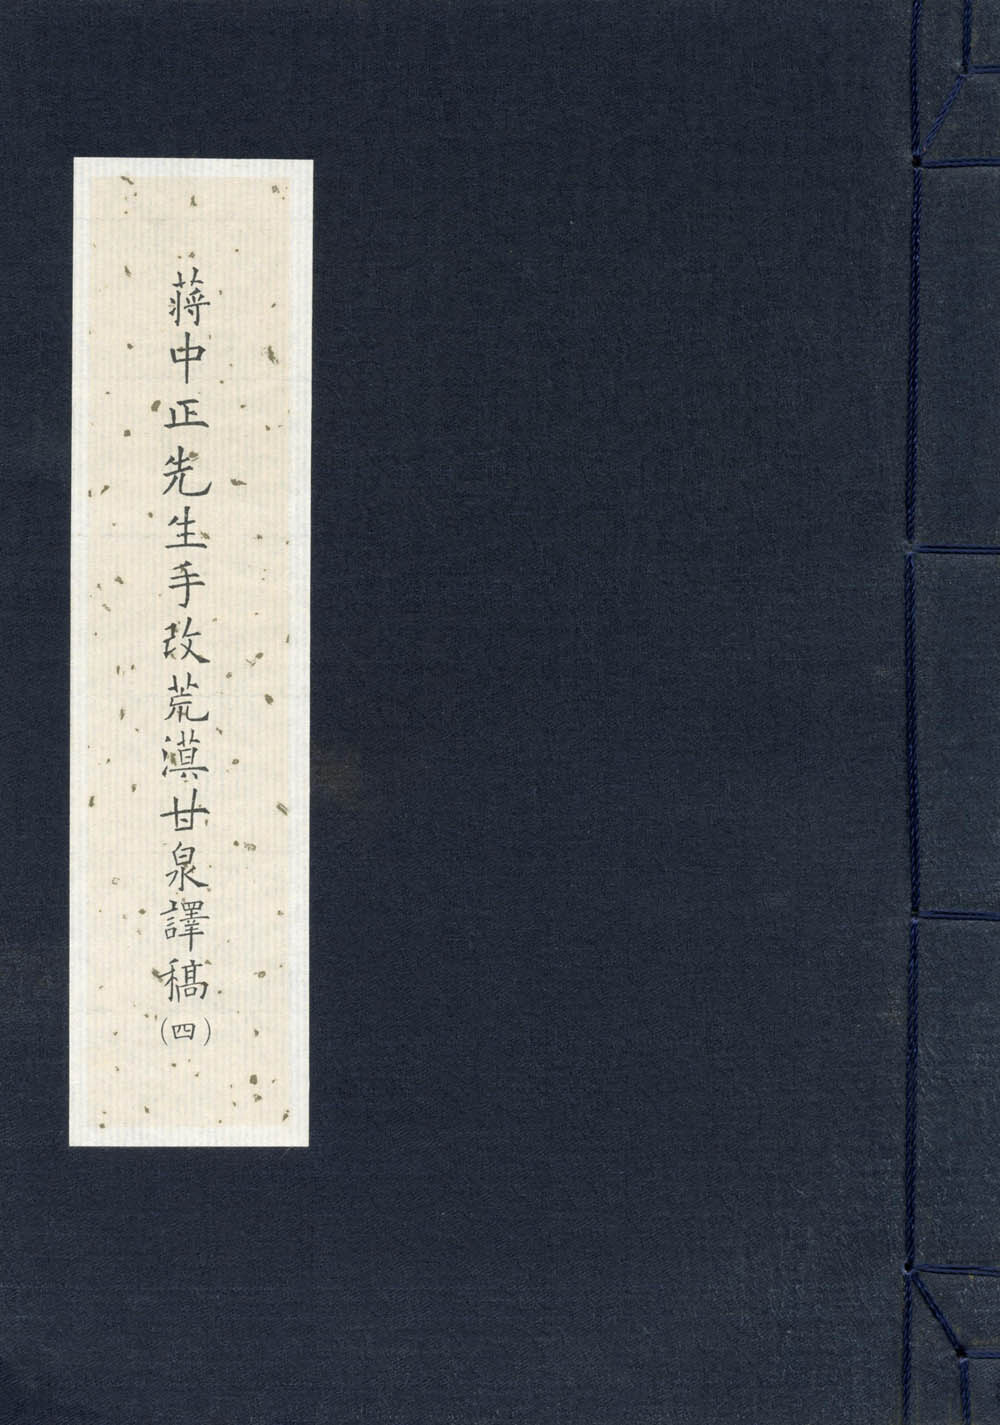 蔣中正先生手改荒漠甘泉譯稿(四)